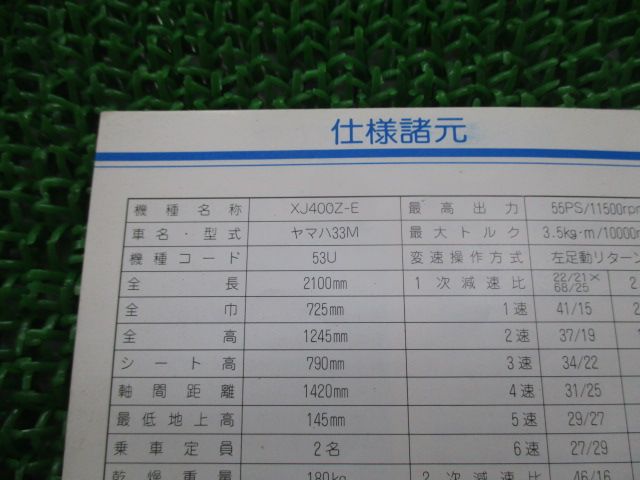 仕様諸元
機種名称 XJ400Z-E 最高出力 55PS/11500rpm
車名・型式 ヤマハ33M 最大トルク 3.5kg·m/10000r
機種コード 53U 変速操作方式 左足動リターン
全長 2100mm 1次減速比 22/21× 68/25 2
全巾 725mm 1速 41/15 2
全高 1245mm 2速 37/19
シート高 790mm 3速 34/22
軸間距離 1420mm 4速 31/25
最低地上高 145mm 5速 29/27
乗車定員 2名 6速 27/29
乾燥重量 180kg 2次減速比 46/16